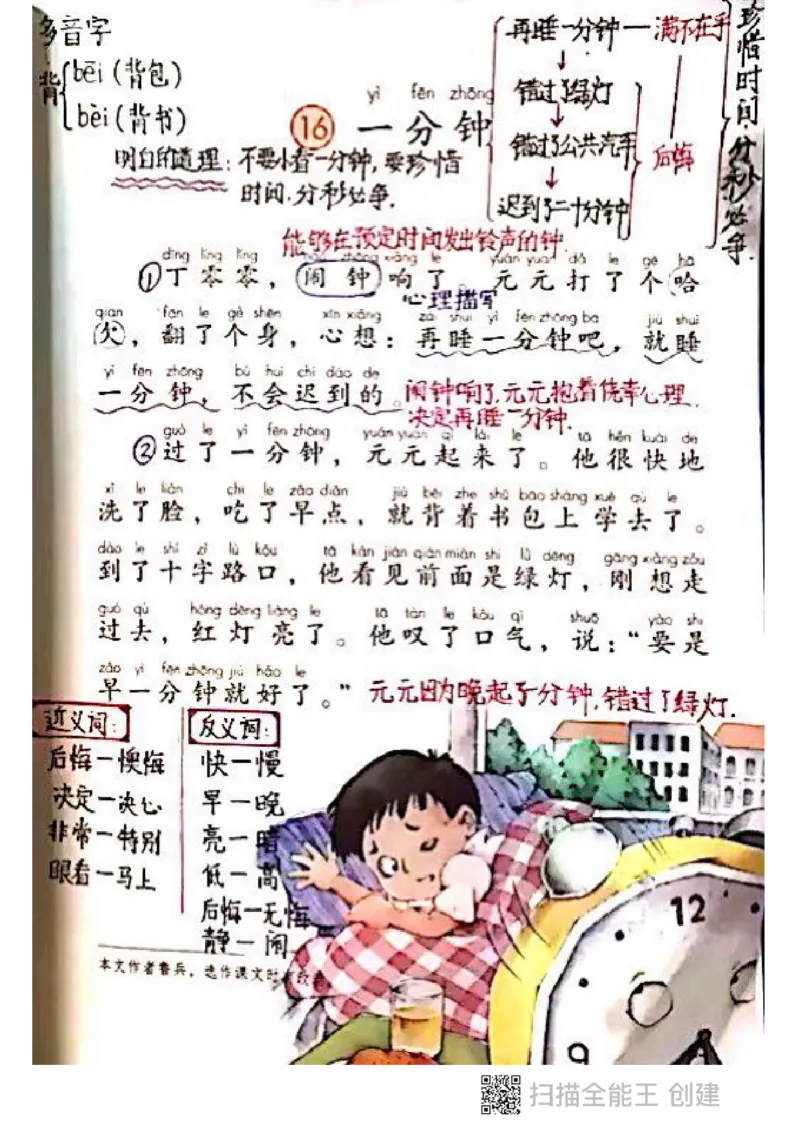 多音字
背
bēi (背包)
bèi (背书)
再睡一分钟 — 满不在乎
错过了绿灯
错过了公共汽车
后悔
迟到了二十分钟
珍惜时间,分秒必争.
yì fēn zhōng
16 一分钟
明白的道理: 不要小看一分钟,要珍惜
时间.分秒必争.
能够在预定时间发出铃声的钟.
dīng líng líng nào zhōng xiǎng le yuán yuan dǎ le gè hā
①丁零零,闹钟响了。元元打了个哈
心理描写
qian fān le gè shēn xīn xiǎng zài shuì yì fēn zhōng ba jiù shuì
欠,翻了个身,心想:再睡一分钟吧,就睡
yì fēn zhōng bú huì chí dào de
一分钟,不会迟到的。
闹钟响了,元元抱着侥幸心理,
决定再睡一分钟.
guò le yì fēn zhōng yuán yuan qǐ lái le tā hěn kuài de
②过了一分钟,元元起来了。他很快地
xǐ le liǎn chī le zǎo diǎn jiù bēi zhe shū bāo shàng xué qù le
洗了脸,吃了早点,就背着书包上学去了。
dào le shí zì lù kǒu tā kàn jiàn qián miàn shì lǜ dēng gāng xiǎng zǒu
到了十字路口,他看见前面是绿灯,刚想走
guò qù hóng dēng liàng le tā tàn le kǒu qì shuō yào shi
过去,红灯亮了。他叹了口气,说:“要是
zǎo yì fēn zhōng jiù hǎo le
早一分钟就好了。”
元元因为晚起了一分钟,错过了绿灯.
近义词:
后悔—懊悔
决定—决心
非常—特别
眼看—马上
反义词:
快—慢
早—晚
亮—暗
低—高
后悔—无悔
静—闹
本文作者鲁兵,选作课文时有改动
12
9
扫描全能王 创建